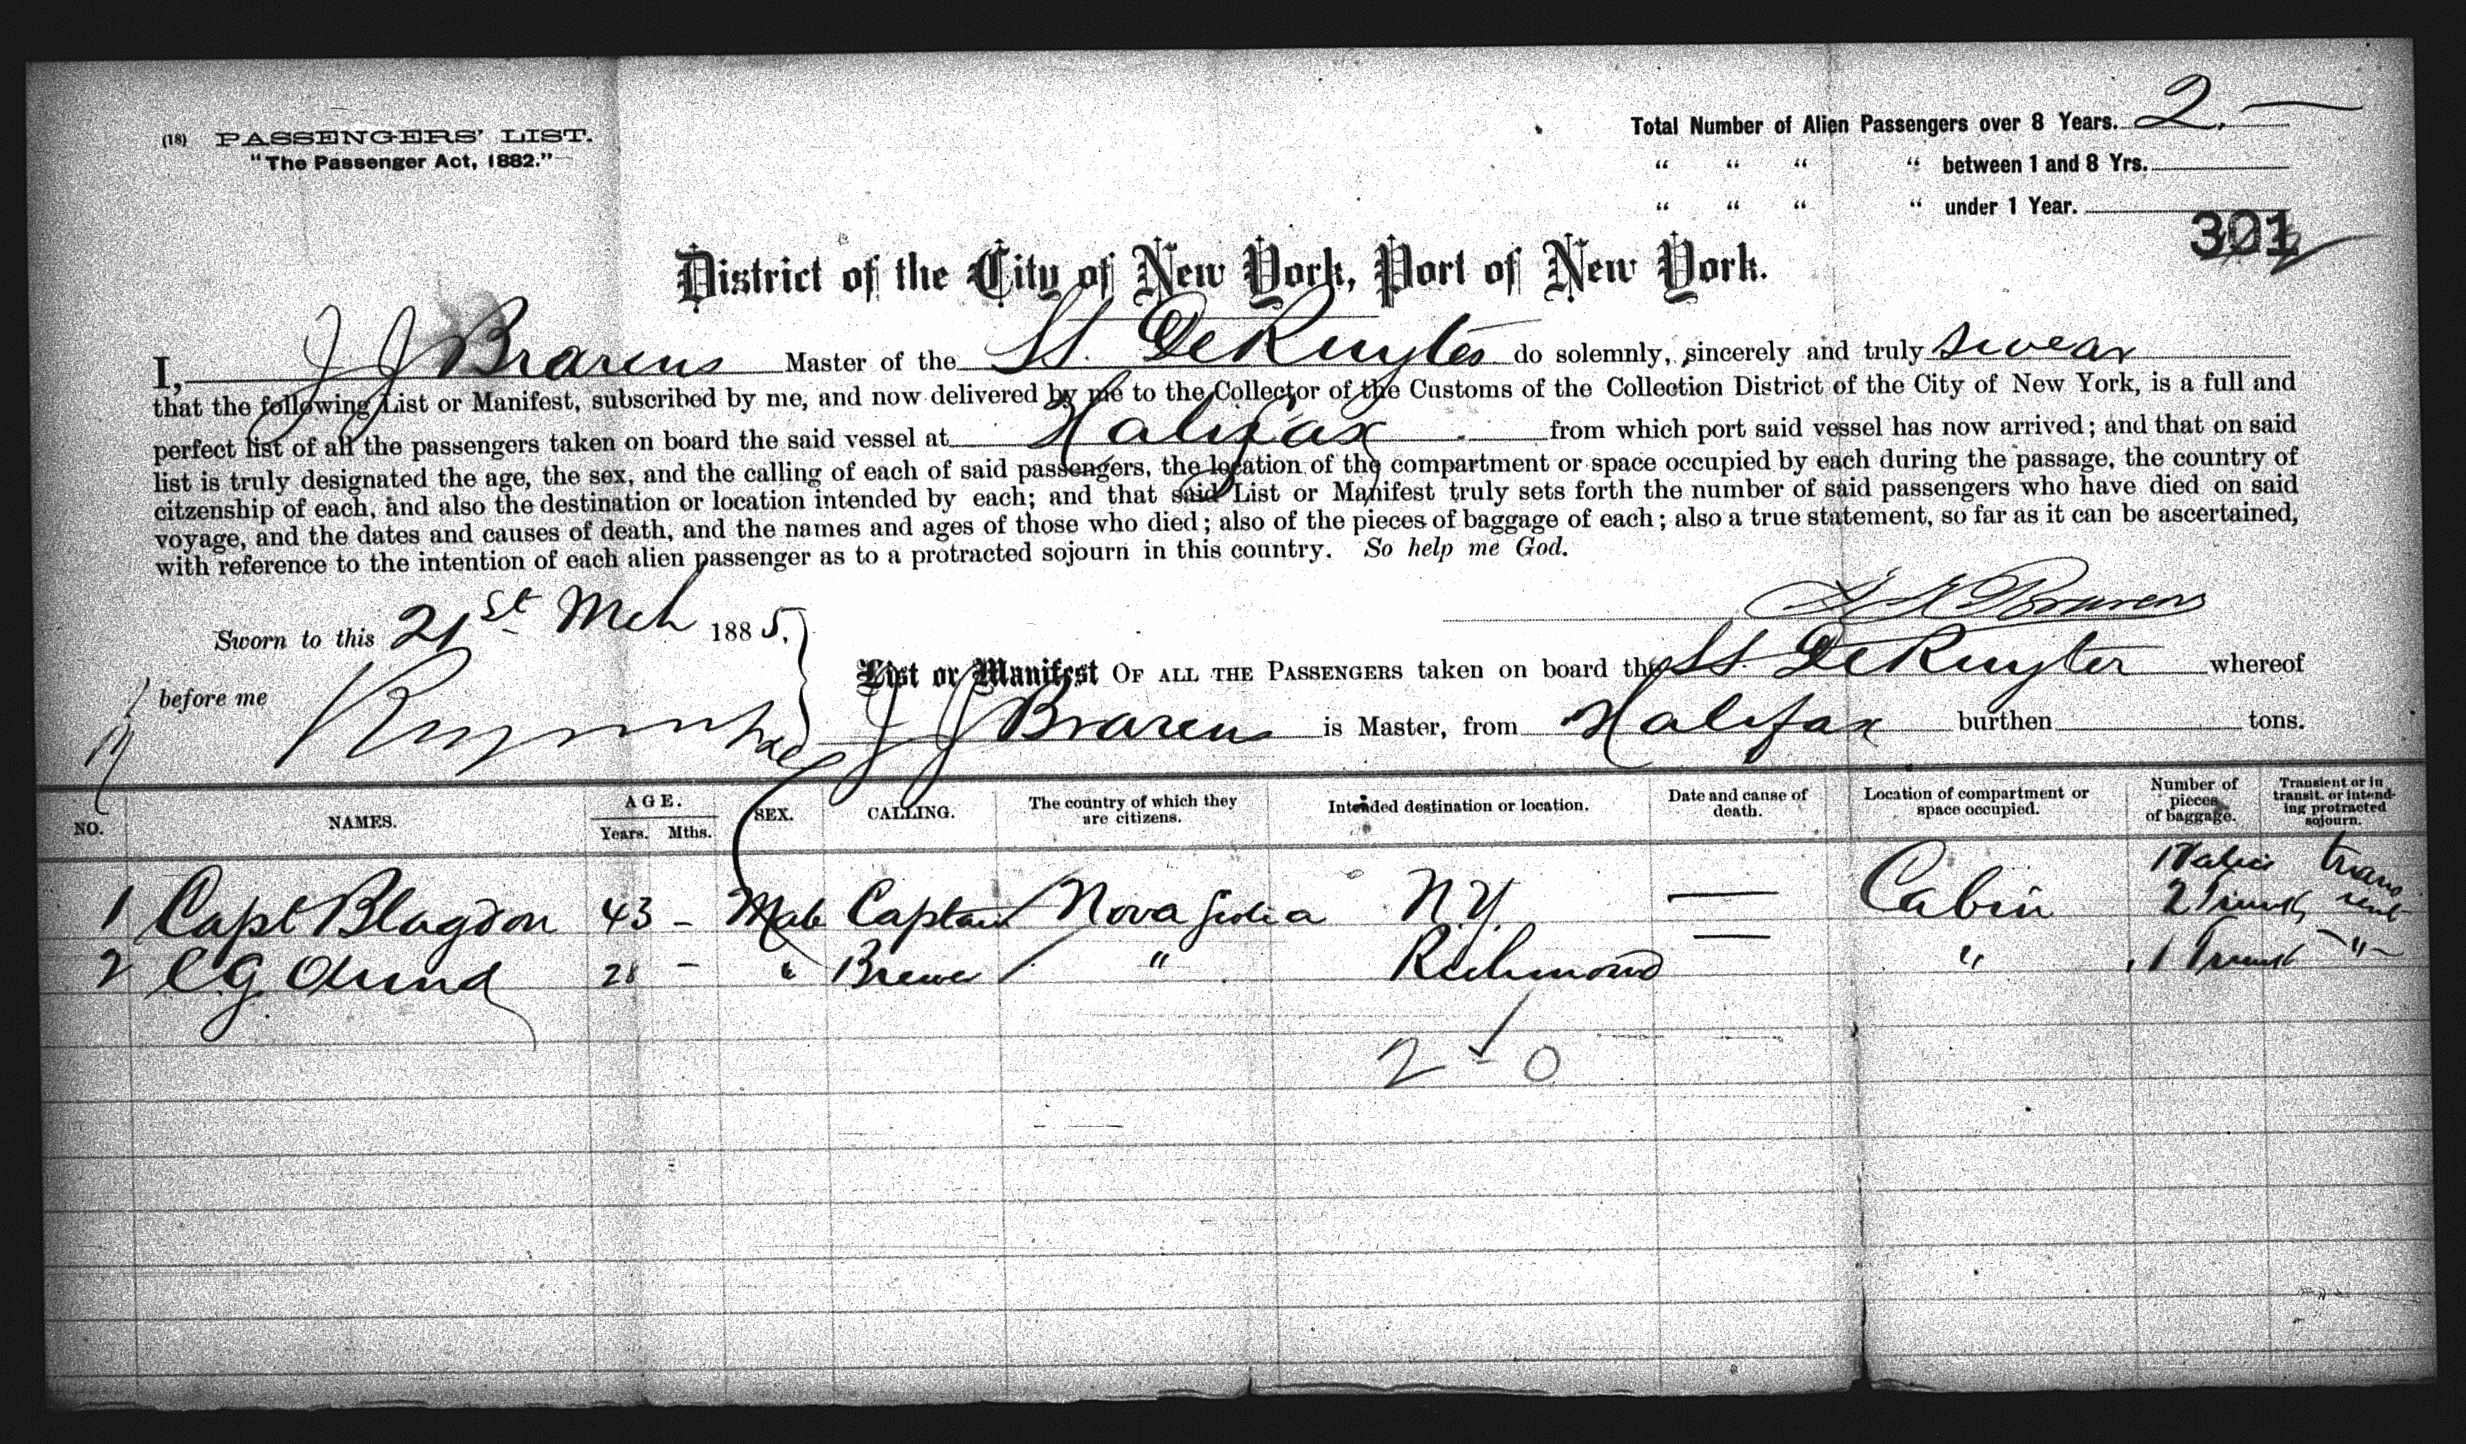 (18) PASSENGERS' LIST.
"The Passenger Act, 1882."
Total Number of Alien Passengers over 8 Years. 2.—
" " " " between 1 and 8 Yrs.
" " " " under 1 Year.
301
District of the City of New York, Port of New York.
I, J J Brarens Master of the SS. De Ruyter do solemnly, sincerely and truly swear
that the following List or Manifest, subscribed by me, and now delivered by me to the Collector of the Customs of the Collection District of the City of New York, is a full and
perfect list of all the passengers taken on board the said vessel at Halifax from which port said vessel has now arrived; and that on said
list is truly designated the age, the sex, and the calling of each of said passengers, the location of the compartment or space occupied by each during the passage, the country of
citzenship of each, and also the destination or location intended by each; and that said List or Manifest truly sets forth the number of said passengers who have died on said
voyage, and the dates and causes of death, and the names and ages of those who died; also of the pieces of baggage of each; also a true statement, so far as it can be ascertained,
with reference to the intention of each alien passenger as to a protracted sojourn in this country. So help me God.
Sworn to this 21st Mch 1885. Brarens
before me
List or Manifest OF ALL THE PASSENGERS taken on board the SS. De Ruyter whereof
J J Brarens is Master, from Halifax burthen tons.
NO. NAMES. AGE. Years. Mths. SEX. CALLING. The country of which they are citizens. Intended destination or location. Date and cause of death. Location of compartment or space occupied. Number of pieces of baggage. Transient or in transit, or intending protracted sojourn.
1 Capt Blagdon 43 – Male Captain Nova Scotia N.Y. — Cabin 1 Valise 2 Trunks transient
2 C G 28 – " Brewer " Richmond — " 1 Trunk "
2 - 0